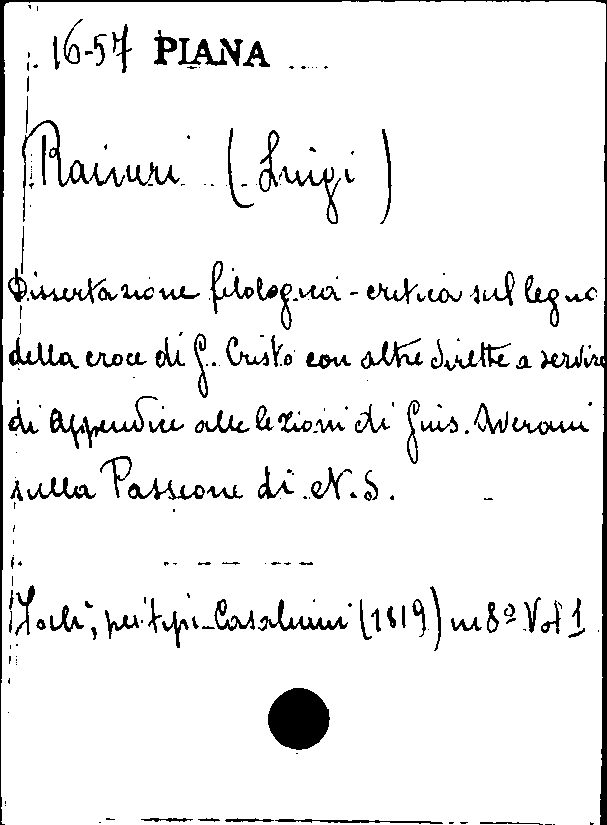 16-57 PIANA
Rainieri (Luigi)
Dissertazione filologica-critica sul legno
della croce di G. Cristo con altre dirette a servire
di Appendice alle lezioni di Gius. Averani
sulla Passione di N.S.
Forlì, pei tipi Casalini (1819) in 8º Vol 1